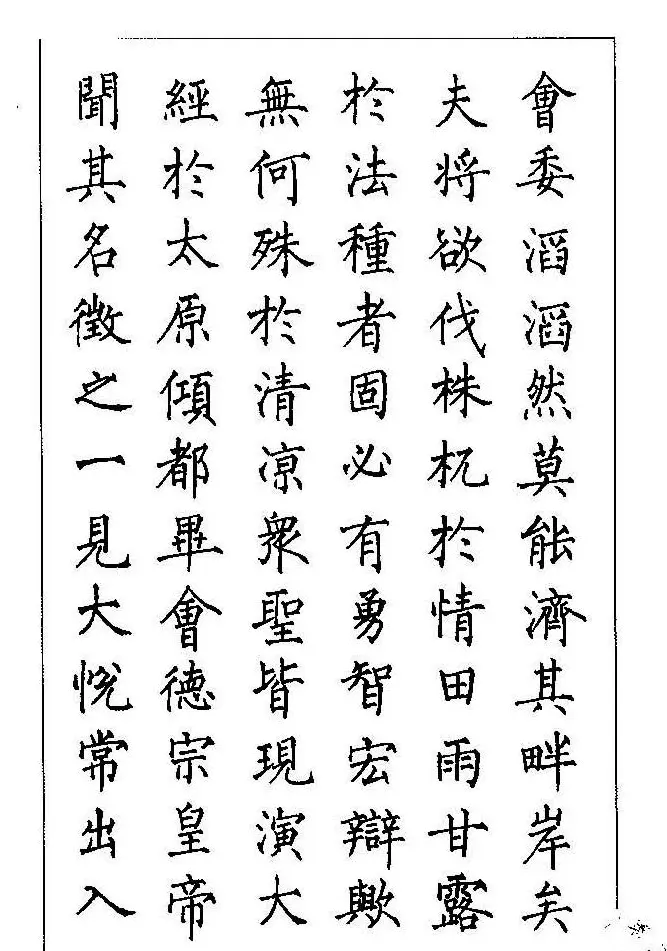 會委滔滔然莫能濟其畔岸矣
夫將欲伐株杌於情田雨甘露
於法種者固必有勇智宏辯歟
無何殊於清涼眾聖皆現演大
經於太原傾都畢會德宗皇帝
聞其名徵之一見大悅常出入